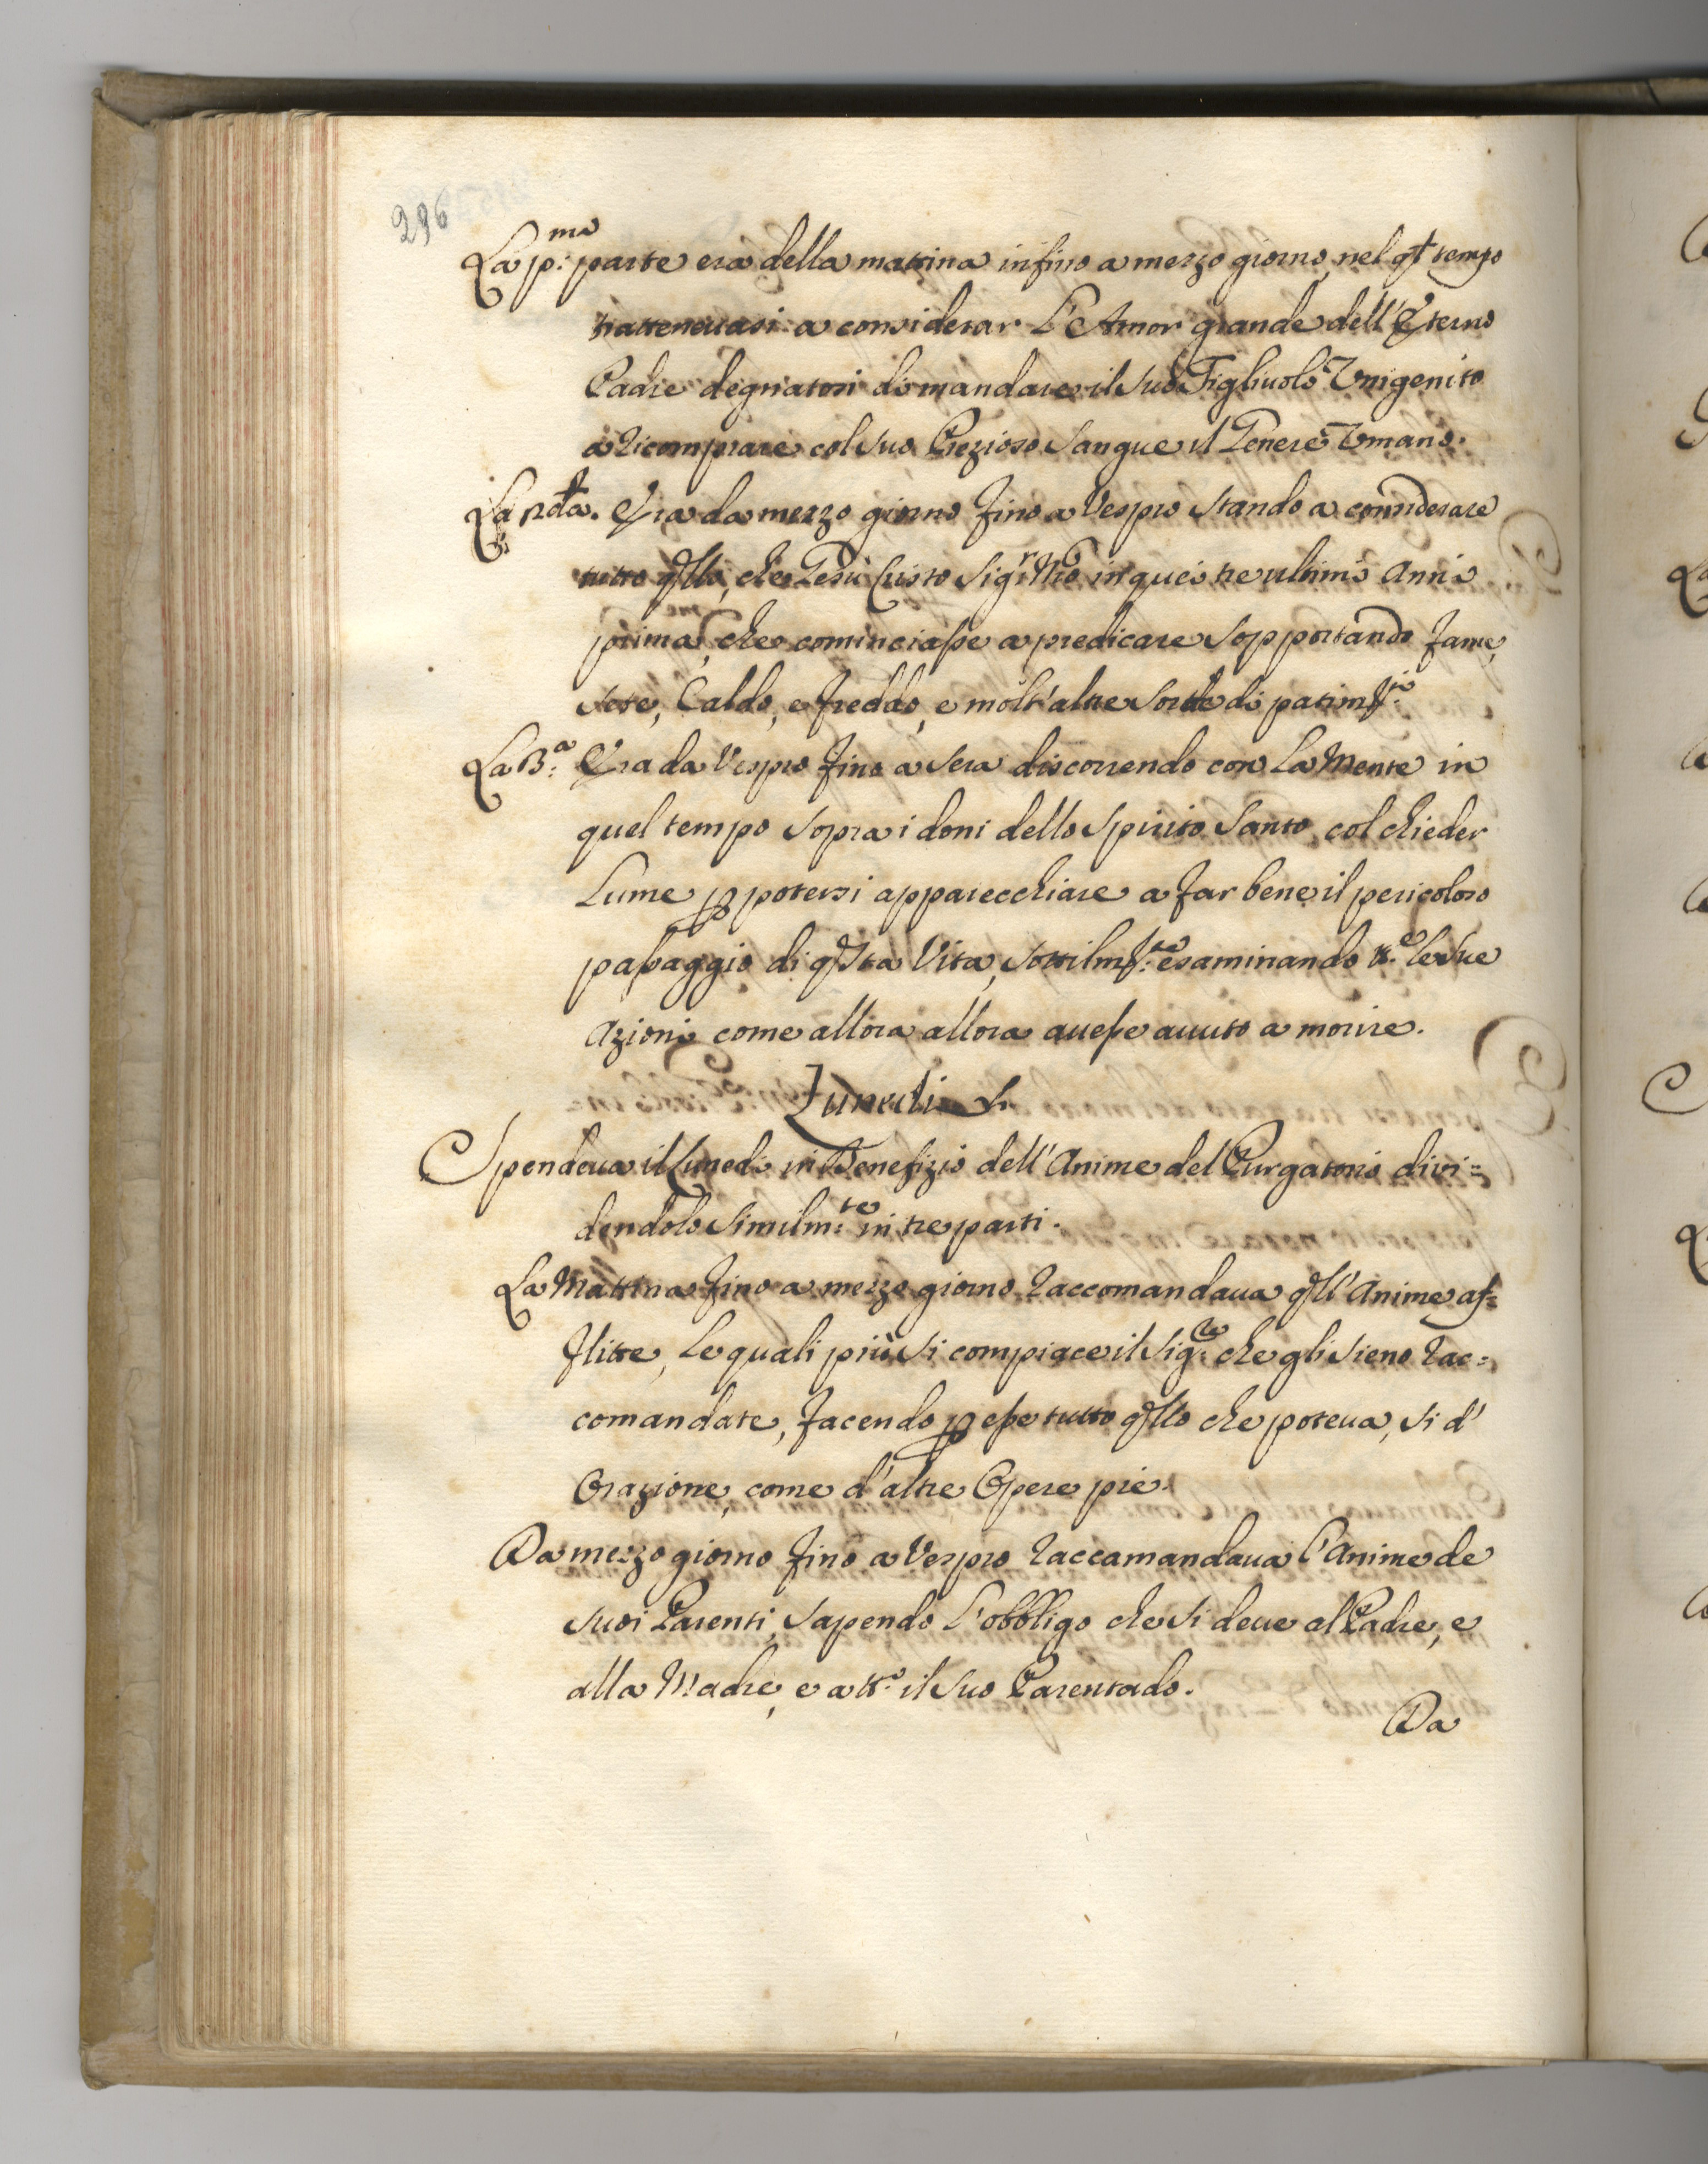 296
La p:ma parte era della mattina infino a mezzo giorno, nel qt tempo
trattenevasi a considerar L'Amor grande dell'Eterno
Padre degnatosi di mandare il suo Figliuolo Unigenito
a Ricomprare col suo Prezioso Sangue il Genere Umano.
La 2da. Era da mezzo giorno fino a Vespro stando a considerare
tutto qllo, che Gesù Cristo Sigr Nro in quei tre ultimi Anni
prima, che cominciasse a predicare sopportando fame,
sete, Caldo, e freddo, e molt'altre sorte di patimti.
La 3:a Era da Vespro fino a sera discorrendo con La Mente in
quel tempo sopra i doni dello Spirito Santo, col chieder
Lume p potersi apparecchiare a far bene il pericoloso
passaggio di qsta Vita, sottilmte: esaminando tt.e le sue
Azioni come allora allora avesse avuto a morire.
Lunedi
Spendeva il Lunedi in Benefizio dell'Anime del Purgatorio divi=
dendolo Similm:te in tre parti.
La Mattina fino a mezzo giorno Raccomandava qll'Anime af=
flitte, Le quali più si compiace il Sig:re che gli sieno Rac=
comandate, facendo p esse tutto qllo che poteva, si d'
Orazione, come d'altre Opere pie.
Da mezzo giorno fino a Vespro Raccamandava l'Anime de
suoi Parenti, sapendo L'obbligo che si deve al Padre, e
alla Madre, e a tt.o il suo Parentado.
Da